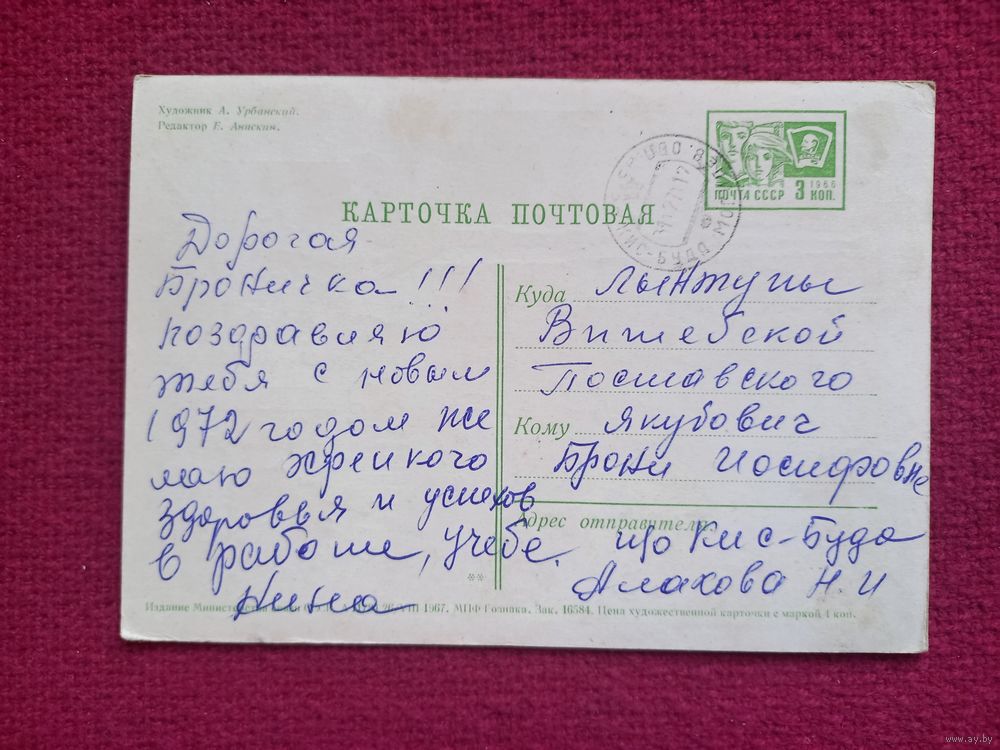 Художник А. Урбанский.
Редактор Е. Анискин.
ПОЧТА СССР
1966
3 КОП.
КАРТОЧКА ПОЧТОВАЯ
Дорогая
Броничка!!!
поздравляю
тебя с новым
1972 годом же
лаю крепкого
здоровья и успехов
в работе, учебе.
Нина
Куда Лынтупы
Витебской
Поставского
Кому Якубович
Брони Иосифовне
Адрес отправителя:
п/о Кис-Буда
Алахова Н. И
**
Издание Министерства 1967. МПФ Гознака. Зак. 16584. Цена художественной карточки с маркой 4 коп.
www.ay.by